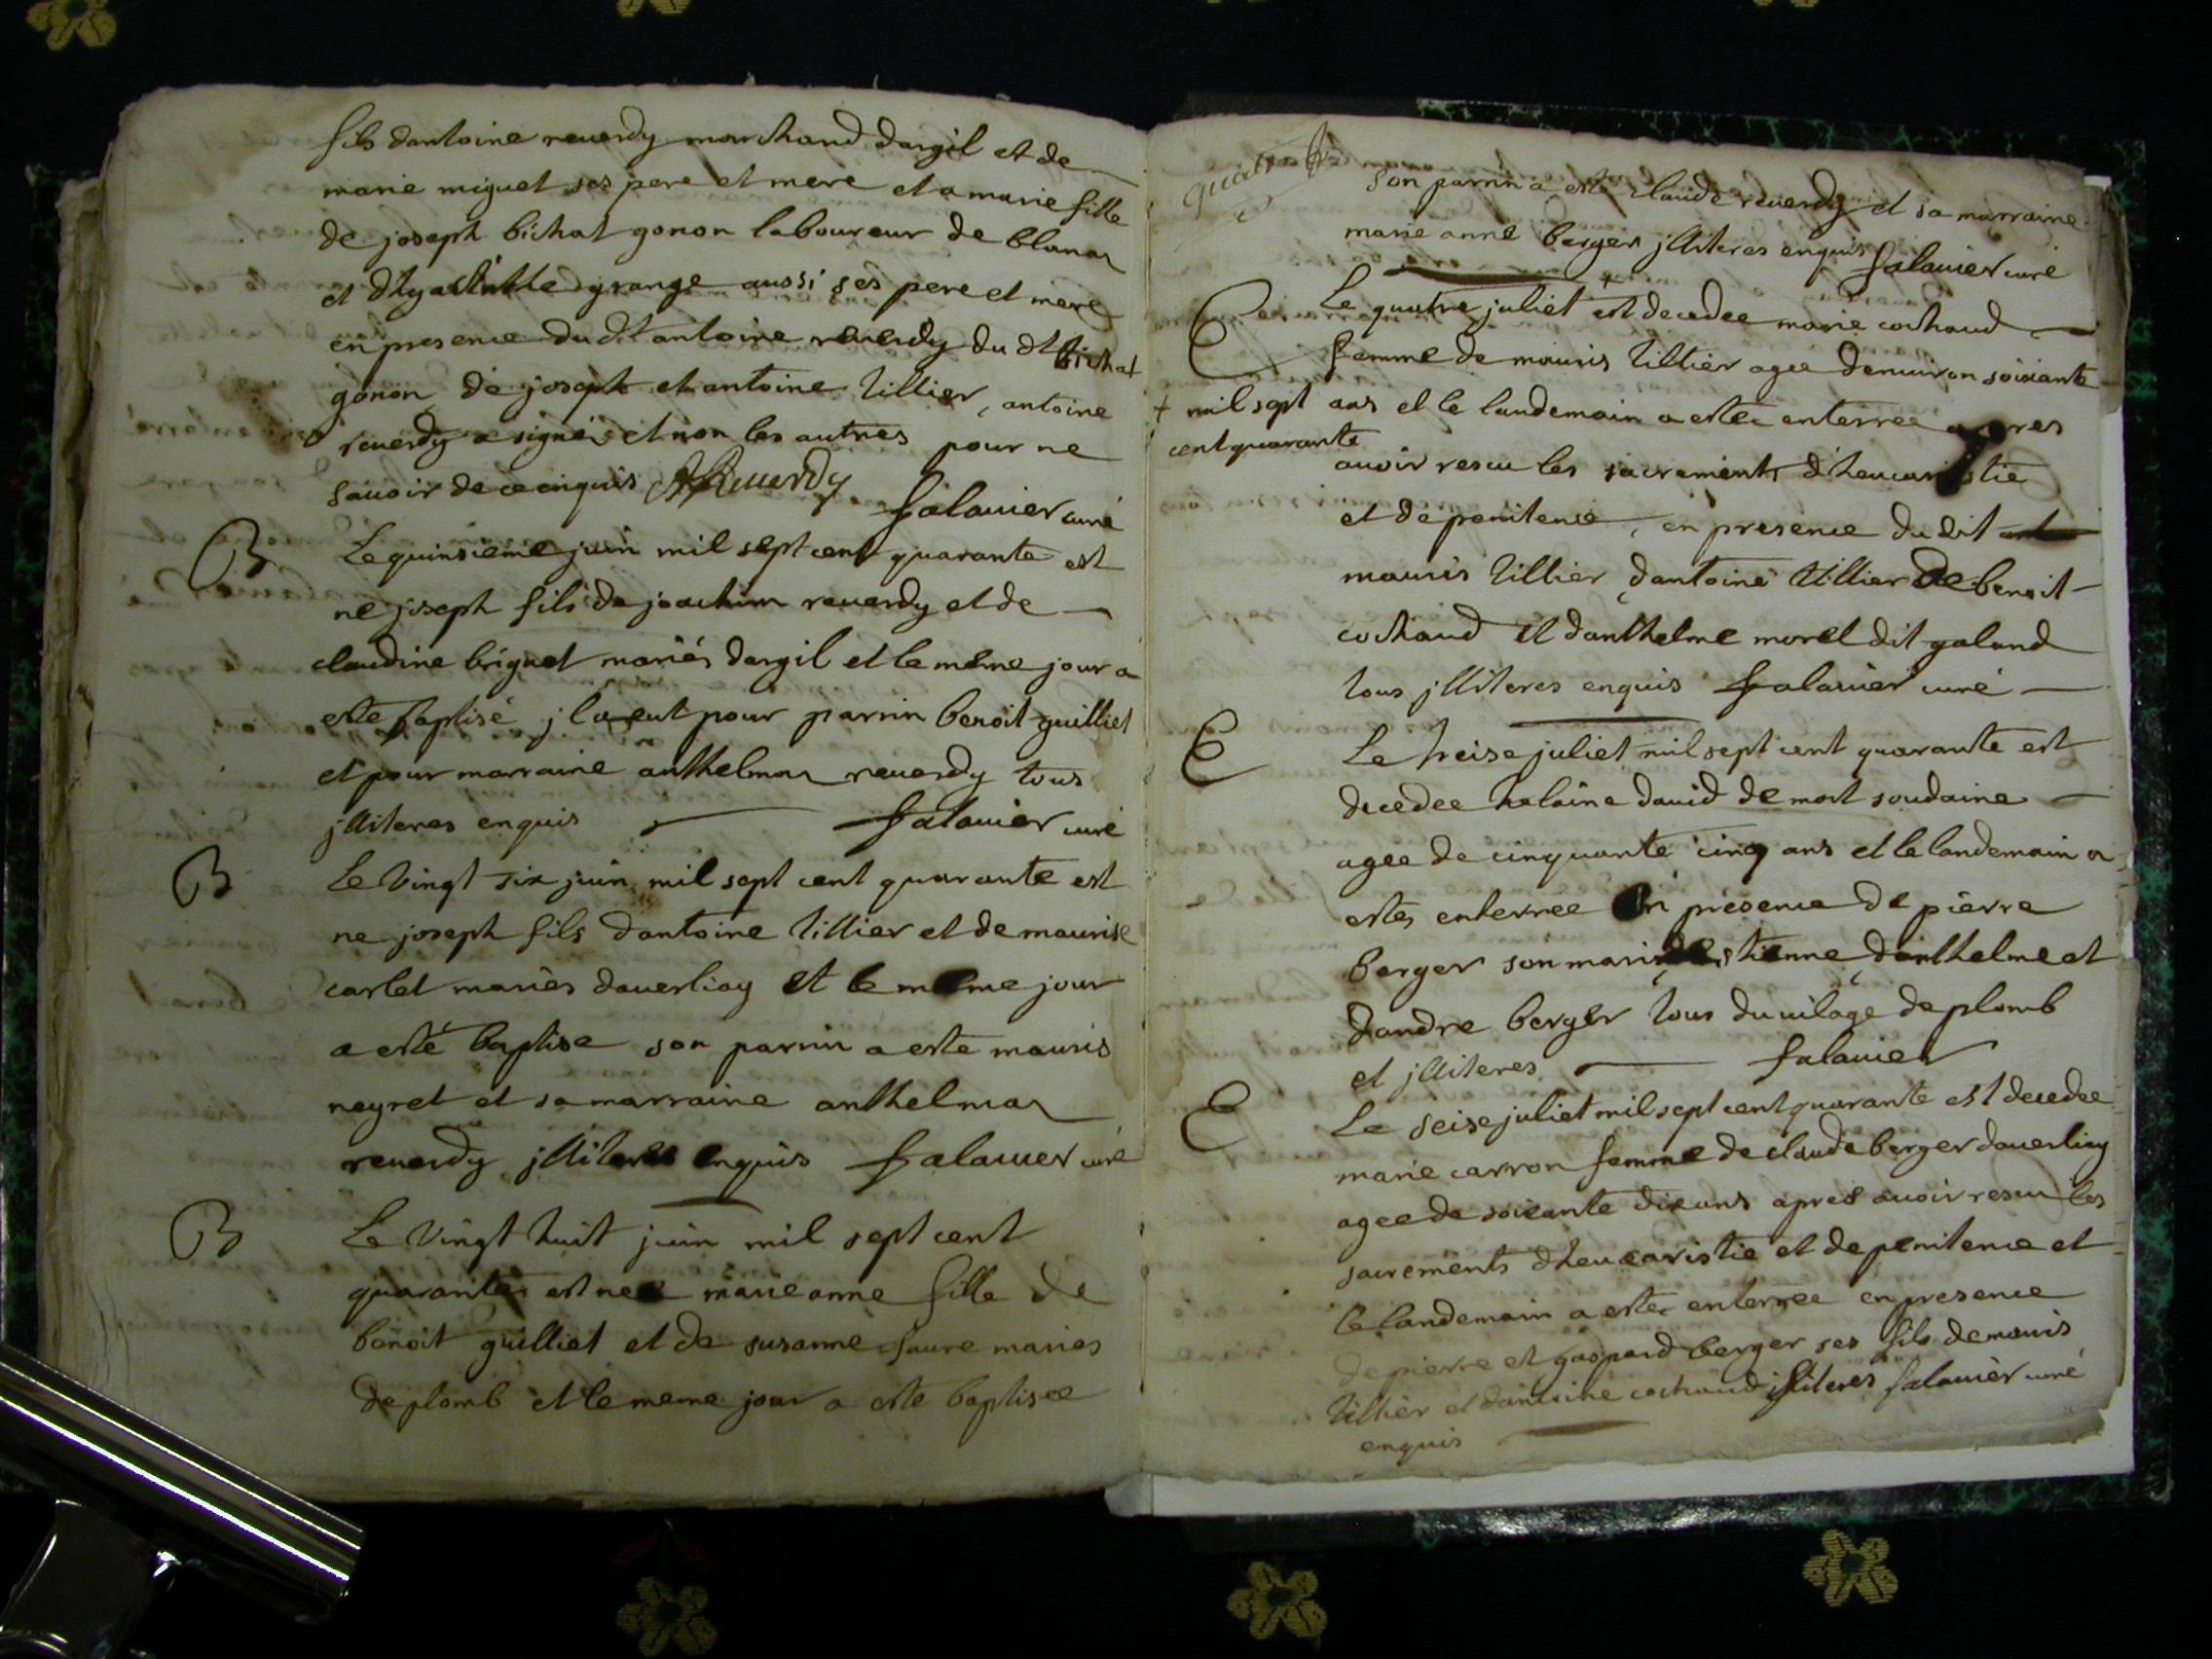 fils dantoine reuerdy marchand dargil et de
marie miguet ses pere et mere et a marie fille
de joseph bichat gonon laboureur de blanaz
et grange aussi ses pere et mere
en presence du dt antoine reuerdy du dt bichat
gonon de joseph et antoine tillier, antoine
reuerdy a signé et non les autres pour ne
sauoir de ce enquis AReuerdy Salauier curé
B Le quinsieme juin mil sept cent quarante est
ne joseph fils de joachim reuerdy et de
claudine briguet mariés dargil et le même jour a
esté baptisé jl a eut pour parrin benoit guilliet
et pour marraine anthelmaz reuerdy tous
jlliteres enquis Salauier curé
B Le vingt six juin mil sept cent quarante est
ne joseph fils dantoine tillier et de maurise
carlet mariés dauerliaz et le meme jour
a esté baptise son parrin a este mauris
neyret et sa marraine anthelmaz
reuerdy jlliteres enquis Salauier curé
B Le vingt huit juin mil sept cent
quarante est nee marie anne fille de
benoit guilliet et de susanne faure maries
de plomb et le meme jour a este baptisee
son parrin a este claude reuerdy et sa marraine
marie anne berger jlliteres enquis Salauier curé
E Le quatre juliet + est decedee marie cochaud
femme de mauris tillier agee denuiron soixante
+ mil sept ans et le landemain a estee enterree apres
cent quarante
auoir rescu les sacrements dheucaristie
et de penitence, en presence du dit
mauris tillier, dantoine tillier de benoit
cochaud et danthelme morel dit galand
tous jlliteres enquis Salauier curé
E Le treise juliet mil sept cent quarante est
decedee helaine dauid de mort soudaine
agee de cinquante cinq ans et le landemain a
estee enterree en presence de pierre
berger son mari destienne danthelme et
dandre berger tous du uilage de plomb
et jlliteres Salauier
E Le seise juliet mil sept cent quarante est decedee
marie carron femme de claude berger dauerliaz
agee de soixante dix ans apres auoir rescu les
sacrements dheucaristie et de penitence et
le landemain a estee enterree en presence
de pierre et gaspard berger ses fils de mauris
tillier et dantoine cochaud jlliteres Salauier curé
enquis